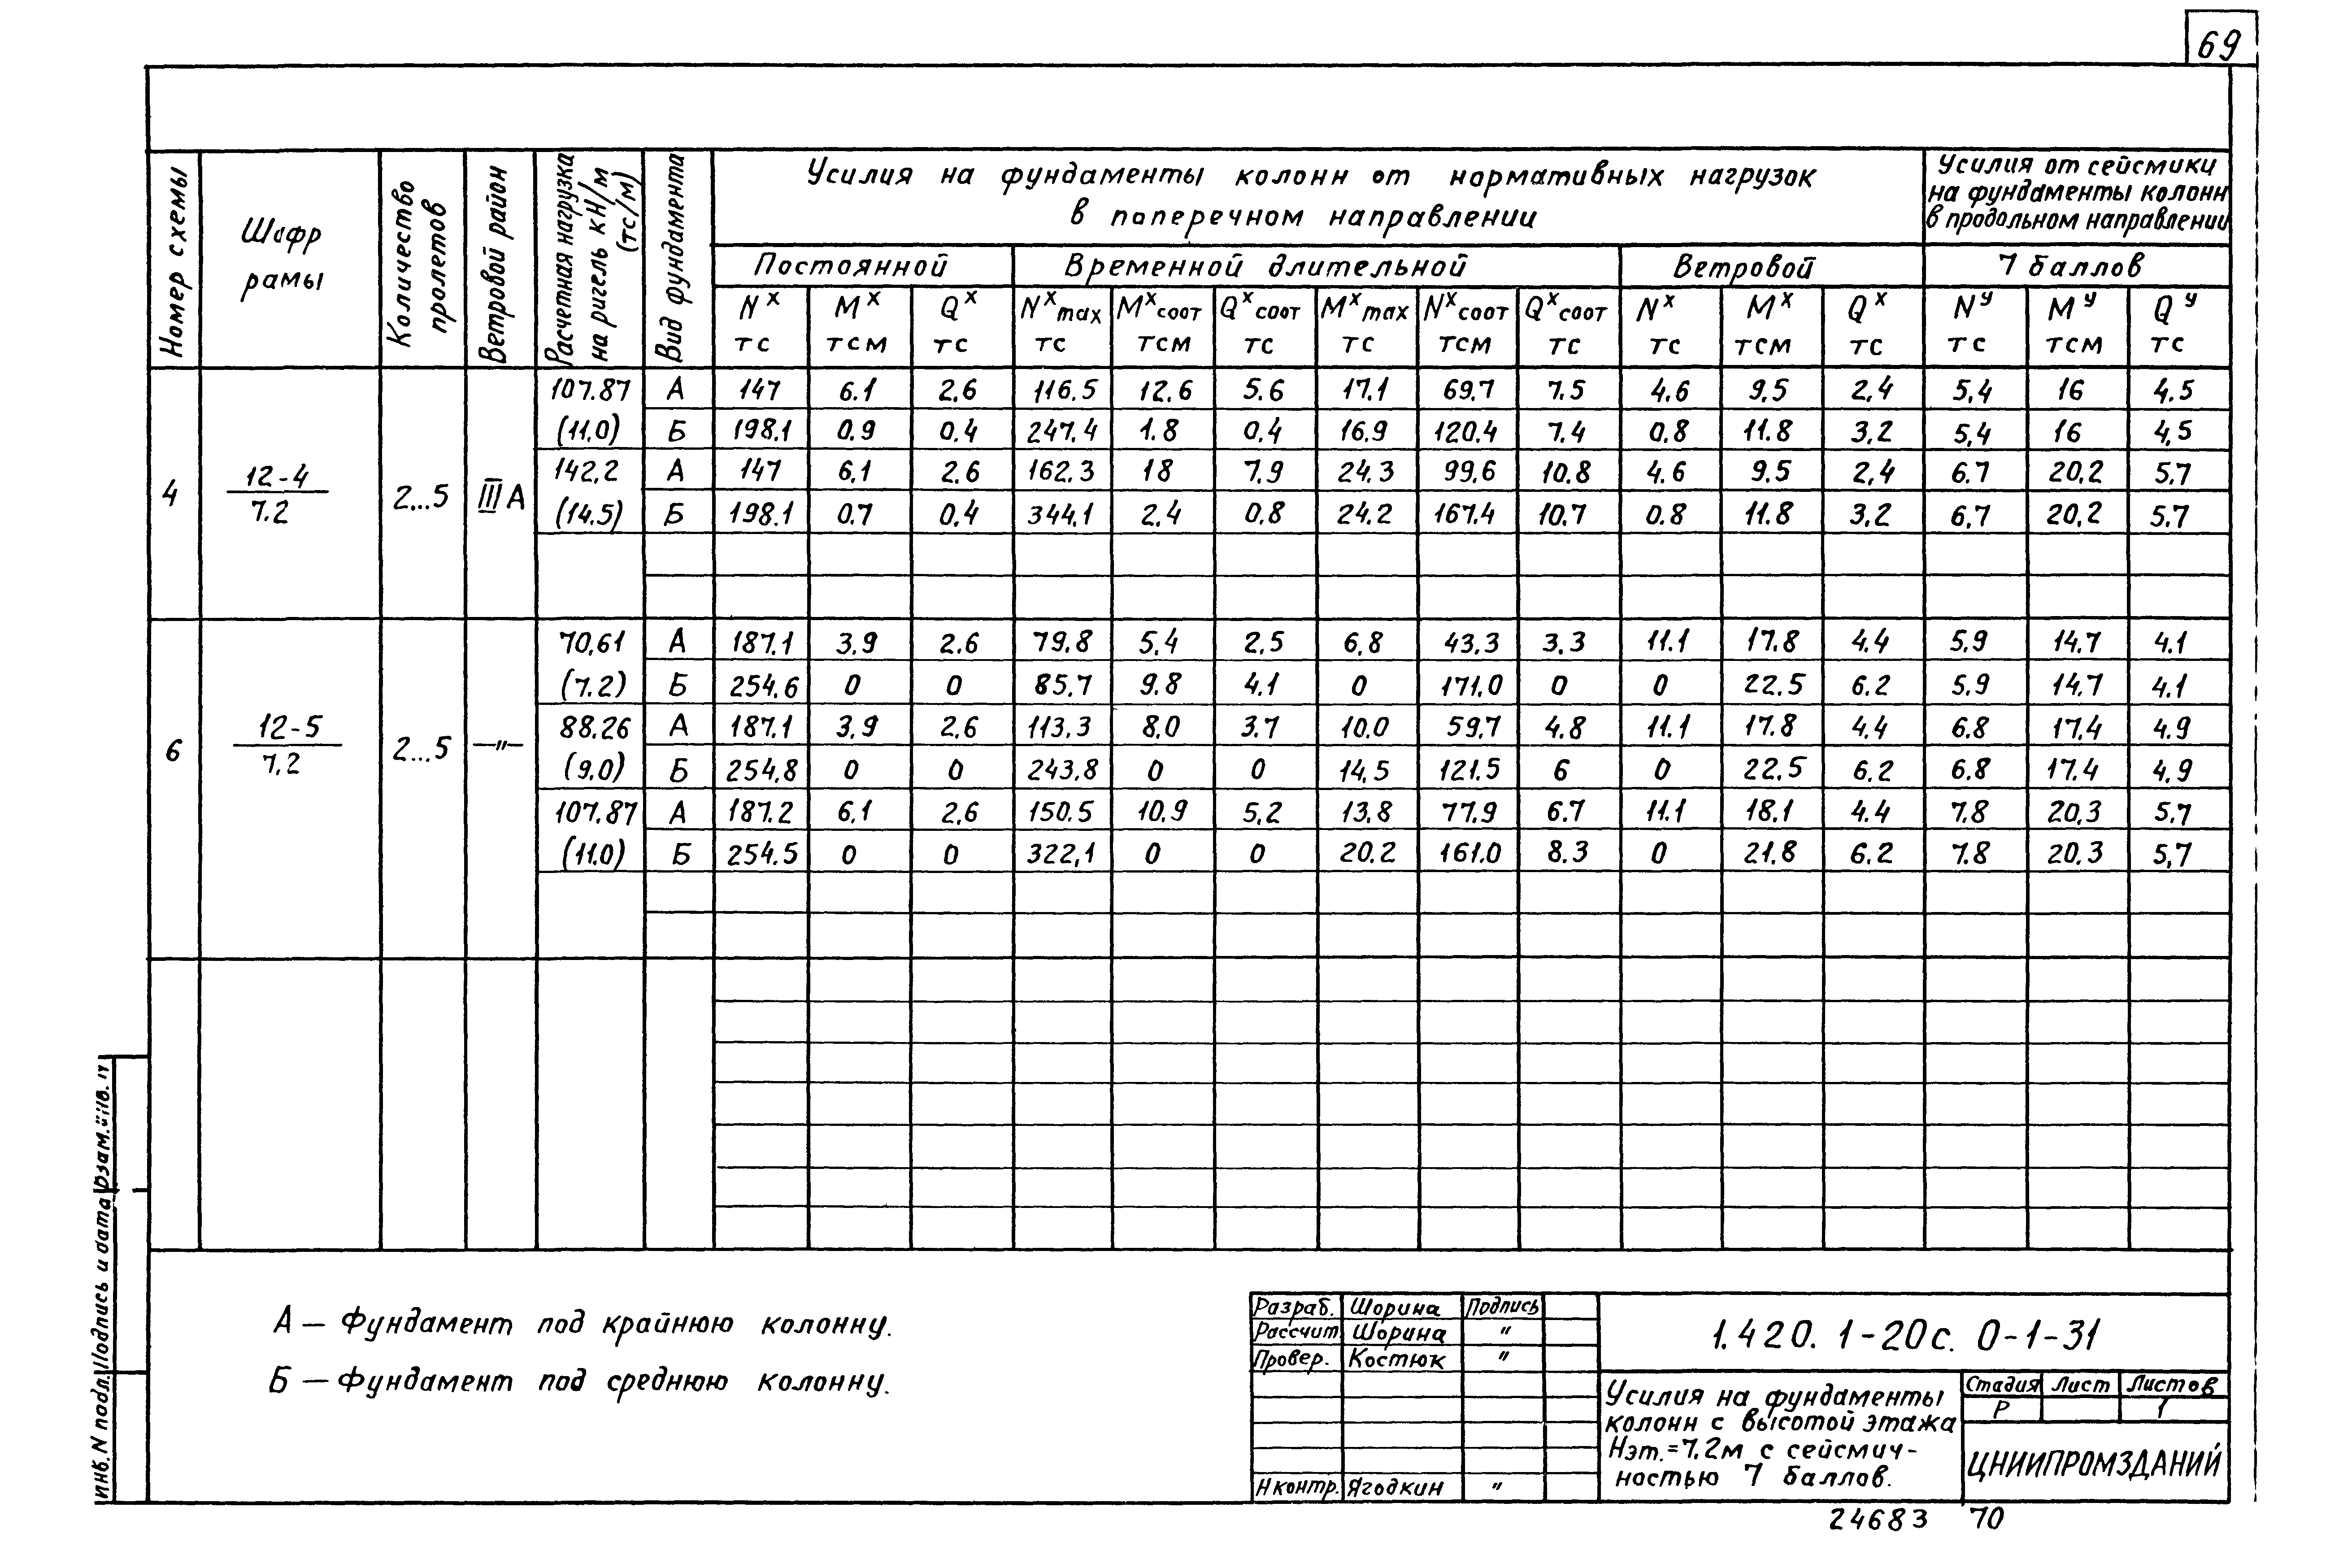 69
Номер схемы
Шифр рамы
Количество пролетов
Ветровой район
Расчетная нагрузка на ригель кН/м (тс/м)
Вид фундамента
Усилия на фундаменты колонн от нормативных нагрузок
в поперечном направлении
Усилия от сейсмики
на фундаменты колонн
в продольном направлении
Постоянной Временной длительной Ветровой 7 баллов
Nˣ Mˣ Qˣ Nˣmax Mˣсоот Qˣсоот Mˣmax Nˣсоот Qˣсоот Nˣ Mˣ Qˣ Nʸ Mʸ Qʸ
тс тсм тс тс тсм тс тс тсм тс тс тсм тс тс тсм тс
4 12-4/7.2 2...5 III А
107.87 А 147 6.1 2.6 116.5 12.6 5.6 17.1 69.7 7.5 4.6 9.5 2,4 5,4 16 4.5
(11.0) Б 198.1 0.9 0.4 247.4 1.8 0.4 16.9 120.4 7.4 0.8 11.8 3.2 5,4 16 4,5
142,2 А 147 6,1 2.6 162.3 18 7.9 24,3 99,6 10.8 4.6 9.5 2,4 6.7 20,2 5,7
(14.5) Б 198.1 0.7 0.4 344,1 2,4 0.8 24.2 167.4 10.7 0.8 11.8 3,2 6,7 20,2 5.7
6 12-5/7,2 2...5 —"—
70,61 А 187.1 3.9 2.6 79.8 5,4 2.5 6,8 43.3 3.3 11.1 17.8 4.4 5.9 14.7 4.1
(7.2) Б 254.6 0 0 85.7 9.8 4.1 0 171.0 0 0 22.5 6.2 5.9 14,7 4.1
88.26 А 187.1 3,9 2,6 113,3 8,0 3.7 10.0 59.7 4.8 11.1 17.8 4,4 6.8 17,4 4.9
(9.0) Б 254,8 0 0 243,8 0 0 14,5 121.5 6 0 22.5 6.2 6.8 17.4 4,9
107.87 А 187.2 6,1 2,6 150.5 10.9 5,2 13,8 77.9 6.7 11.1 18,1 4.4 7.8 20,3 5.7
(11.0) Б 254.5 0 0 322,1 0 0 20.2 161.0 8.3 0 21,8 6.2 7.8 20.3 5,7
А — Фундамент под крайнюю колонну.
Б — Фундамент под среднюю колонну.
Разраб. Шорина Подпись
Рассчит. Шорина "
Провер. Костюк "
Н контр. Ягодкин "
1.420. 1-20с. 0-1-31
Усилия на фундаменты
колонн с высотой этажа
Нэт.=7.2м с сейсмич-
ностью 7 баллов.
Стадия Лист Листов
Р 1
ЦНИИПРОМЗДАНИЙ
24683 70
Инв. N подл. Подпись и дата Взам. инв.